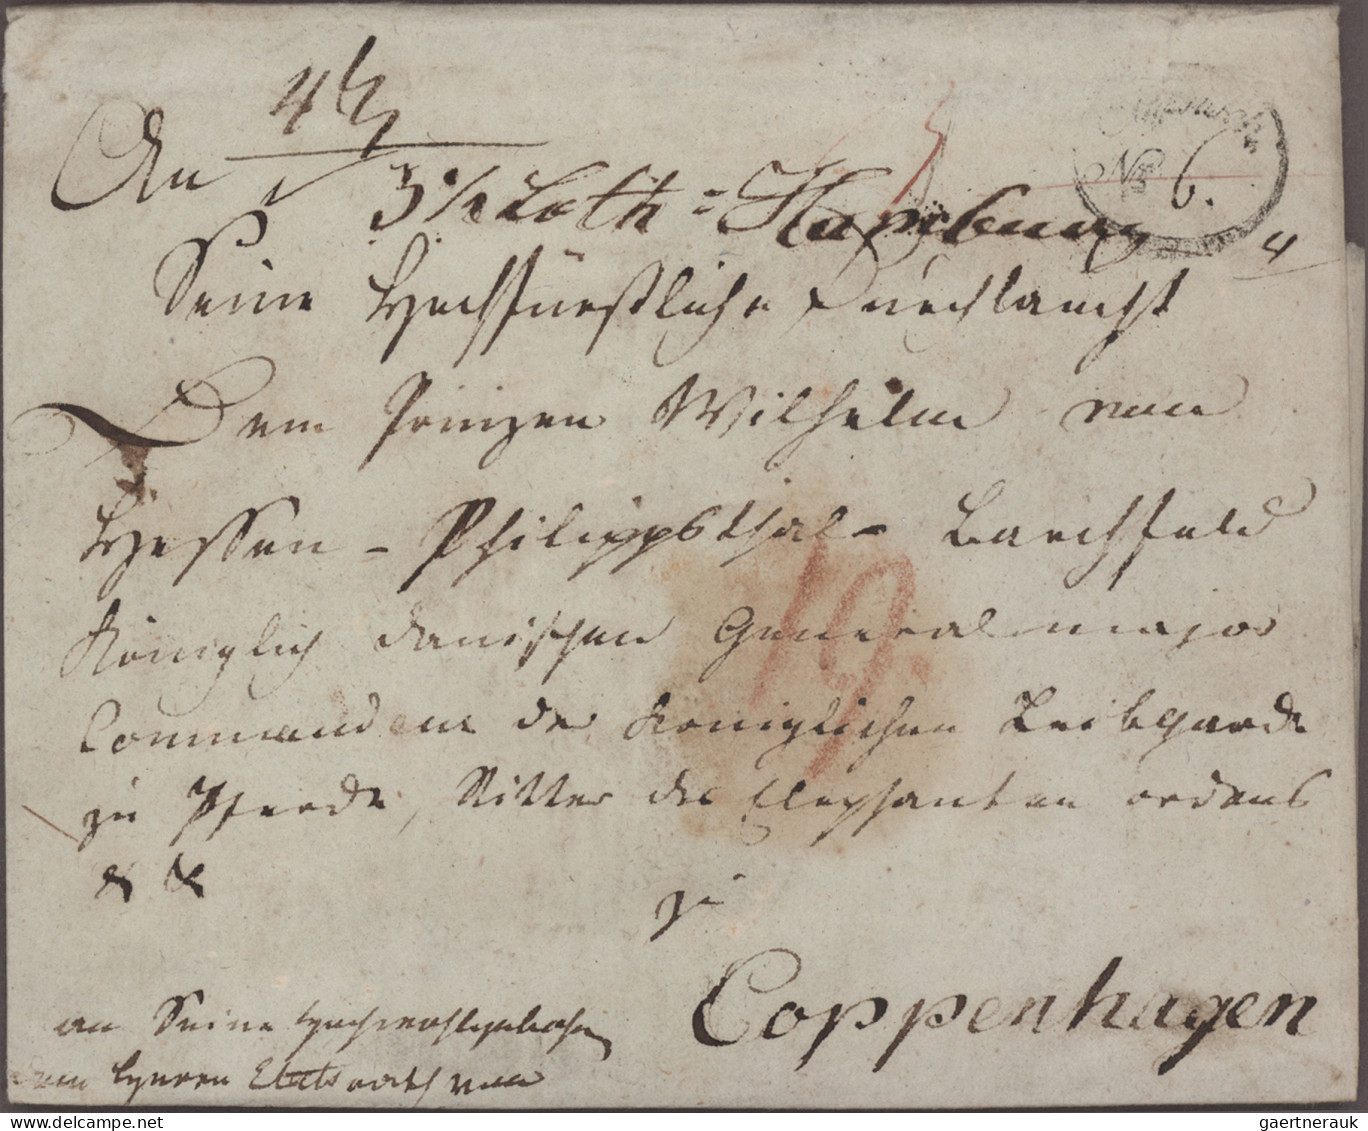 4½
An
3½ Loth = Hamburg
No 6.
4
Seine Hochfürstliche Durchlaucht
Dem Prinzen Wilhelm von
Hessen - Philippsthal - Barchfeld
Königlich dänischen Generalmajor
Commandeur der Königlichen Leibgarde
zu Pferde, Ritter des Elephanten ordens
& &
19.
zu
Coppenhagen
an Seine
dem Herren Etatsrath von
delcampe.net
gaertnerauk